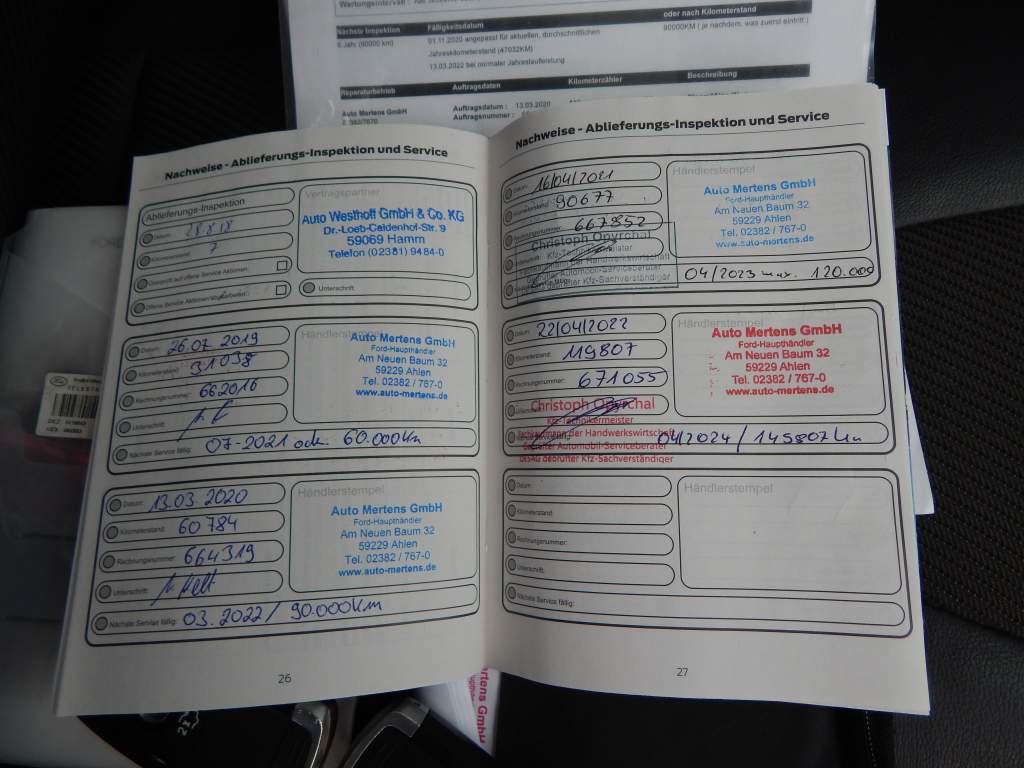 Nächste Inspektion Fälligkeitsdatum oder nach Kilometerstand
01.11.2020 angepasst für aktuellen, durchschnittlichen 90000KM ( je nachdem, was zuerst eintritt )
Jahreskilometerstand (47032KM)
13.03.2022 bei normaler Jahreslaufleistung
Reparaturbetrieb Auftragsdaten Kilometerzähler Beschreibung
Auto Mertens GmbH Auftragsdatum : 13.03.2020
Auftragsnummer :
Nachweise - Ablieferungs-Inspektion und Service
Ablieferungs-Inspektion
Datum:
Vertragspartner
Auto Westhoff GmbH & Co. KG
Dr.-Loeb-Caldenhof-Str. 9
59069 Hamm
Telefon (02381) 9484-0
Unterschrift
Datum: 26.07 2019
Kilometerstand: 31038
Rechnungsnummer: 662016
Unterschrift:
Nächste Service fällig: 07-2021 od. 60.000Km
Händlerstempel
Auto Mertens GmbH
Ford-Haupthändler
Am Neuen Baum 32
59229 Ahlen
Tel. 02382 / 767-0
www.auto-mertens.de
Datum: 13.03.2020
Kilometerstand: 60784
Rechnungsnummer: 664319
Unterschrift:
Nächste Service fällig: 03.2022 / 90.000Km
Händlerstempel
Auto Mertens GmbH
Ford-Haupthändler
Am Neuen Baum 32
59229 Ahlen
Tel. 02382 / 767-0
www.auto-mertens.de
26
Nachweise - Ablieferungs-Inspektion und Service
Datum: 16/04/2021
Kilometerstand: 90677
Rechnungsnummer: 667852
Christoph Opyrchal
04/2023 max. 120.000
Händlerstempel
Auto Mertens GmbH
Ford-Haupthändler
Am Neuen Baum 32
59229 Ahlen
Tel. 02382 / 767-0
www.auto-mertens.de
Datum: 22/04/2022
Kilometerstand: 119807
Rechnungsnummer: 671055
Christoph Opyrchal
Kfz-Technikermeister
Fachmann der Handwerkswirtschaft
Geprüfter Automobil-Serviceberater
geprüfter Kfz-Sachverständiger
04/2024 / 145807 km
Händlerstempel
Auto Mertens GmbH
Ford-Haupthändler
Am Neuen Baum 32
59229 Ahlen
Tel. 02382 / 767-0
www.auto-mertens.de
Datum:
Kilometerstand:
Rechnungsnummer:
Unterschrift:
Nächste Service fällig:
Händlerstempel
27